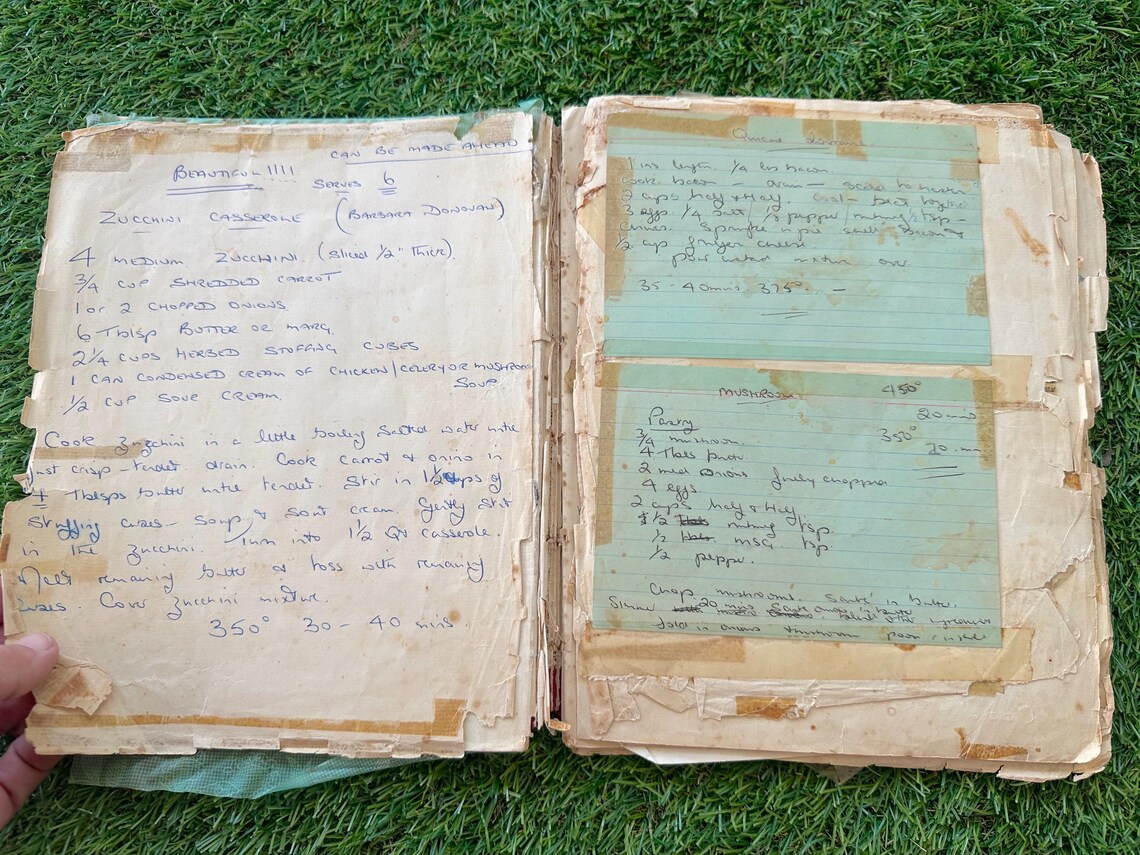 CAN BE MADE AHEAD
BEAUTIFUL !!!!
SERVES 6
ZUCCHINI CASSEROLE (BARBARA DONOVAN)
4 MEDIUM ZUCCHINI. (Sliced 1/2" THICK).
3/4 CUP SHREDDED CARROT
1 or 2 CHOPPED ONIONS.
6 Tblsp BUTTER OR MARG.
2 1/4 CUPS HERBED STUFFING CUBES
1 CAN CONDENSED CREAM OF CHICKEN/CELERY OR MUSHROOM
SOUP
1/2 CUP SOUR CREAM.
Cook Zuzchini in a little boiling salted water until
just crisp-tender drain. Cook carrot & onino in
4 Tblsps butter until tender. Stir in 1 1/2 cups of
stuffing cubes - soup & sour cream. Gently stir
in the zucchini. Turn into 1 1/2 Qt casserole.
Melt remaining butter & toss with remaining
cubes. Cover zucchini mixture.
350° 30 - 40 mins.
Quiche Lorraine
1 ins length. 1/4 lbs bacon.
cook bacon - drain -
2 cups half & Half. Cool - beat together
3 eggs. 1/4 salt / 1/8 pepper / nutmeg 1/2 tsp -
Sprinkle in pie shell bacon &
1/2 cup gruyer cheese.
pour over.
35 - 40 mins. 375°. -
MUSHROOM 450°
20 mins
Pastry 350°
3/4 mushroom. 20 mins
4 Tbls butter.
2 med onions finely chopped
4 eggs
2 cups half & Half
1/2 nutmeg tsp.
1/2 MSG tsp
1/2 pepper.
Chop mushrooms. Sauté in butter.
Simmer 20 mins
fold in onions mushroom pour in shell